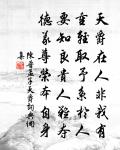 天爵在人非我有
重輕取予系於人
要知良貴人
德義尊榮本自身
陳普孟子天爵詞典網
集